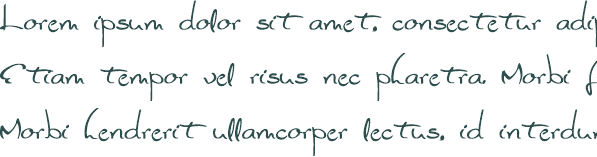 Lorem ipsum dolor sit amet, consectetur adip
Etiam tempor vel risus nec pharetra. Morbi f
Morbi hendrerit ullamcorper lectus, id interdum